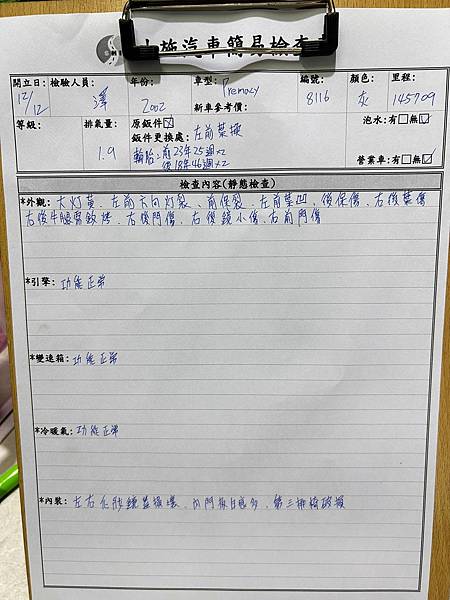 小施汽車簡易檢查
開立日: 檢驗人員: 年份: 車型: Premacy 編號: 顏色: 里程:
12/12 澤 2002 新車參考價: 8116 灰 145709
等級: 排氣量: 原鈑件☒ 泡水:有□無☑
1.9 鈑件更換處: 左前葉換
輪胎:前23年25週x2
後18年46週x2 營業車:有□無☑
檢查內容(靜態檢查)
*外觀: 大灯黃、左前方向灯裂、前保裂、左前葉凹、後保傷、右後葉傷
右後牛腿需鈑烤、右後門傷、右後鏡小傷、右前門傷
*引擎: 功能正常
*變速箱: 功能正常
*冷暖氣: 功能正常
*內裝: 左右化妝鏡蓋損壞、內門板白 多、第三排椅破損